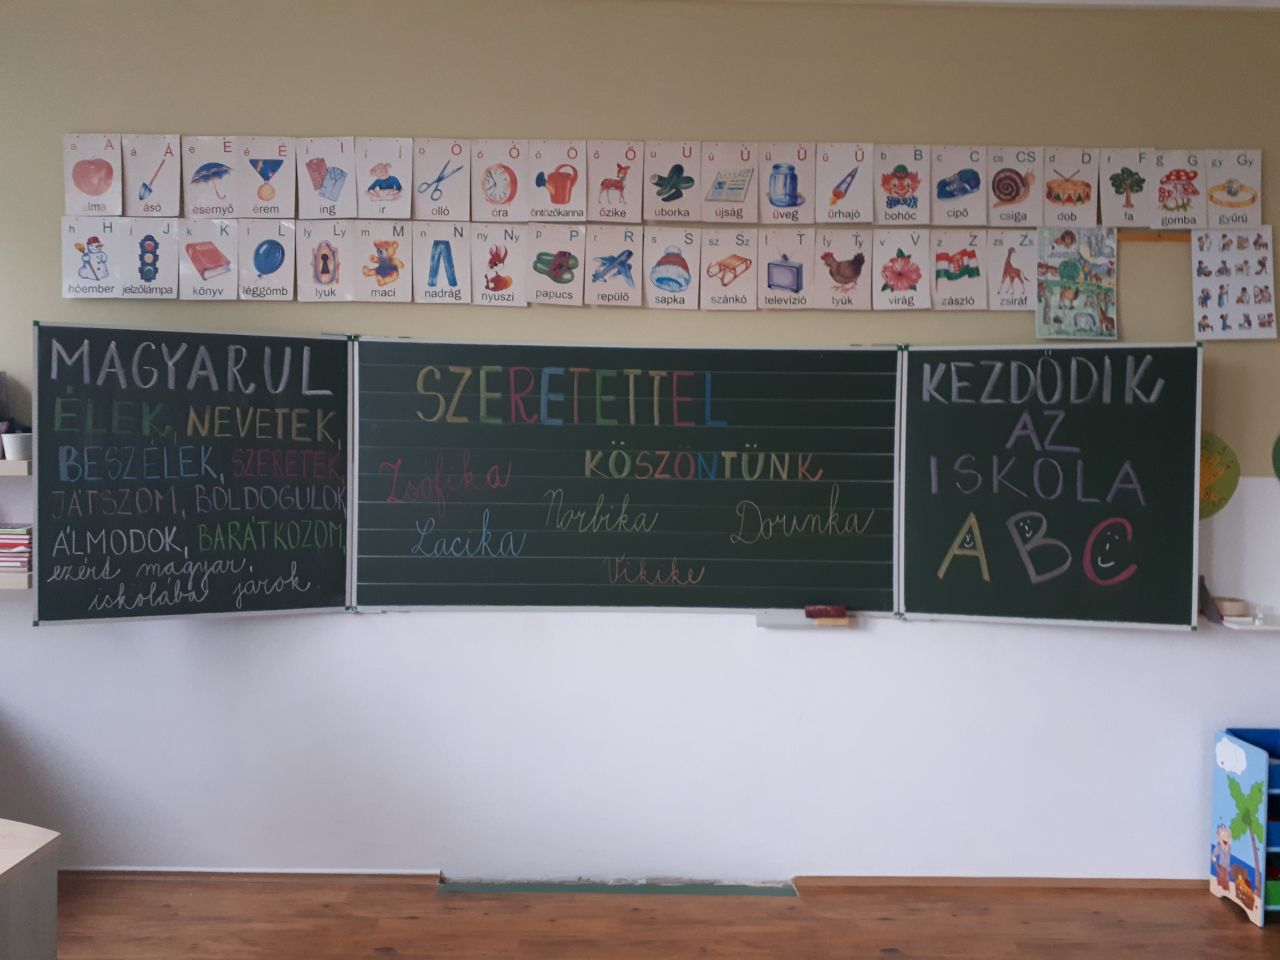 a A
elma
á Á
ásó
e E
esernyő
é É
érem
i I
ing
í Í
ír
o O
olló
ó Ó
óra
ö Ö
öntözőkanna
ő Ő
őzike
u U
uborka
ú Ú
újság
ü Ü
üveg
ű Ű
űrhajó
b B
bohóc
c C
cipő
cs CS
csiga
d D
dob
f F
fa
g G
gomba
gy Gy
gyűrű
h H
hóember
j J
jelzőlámpa
k K
könyv
l L
léggömb
ly Ly
lyuk
m M
maci
n N
nadrág
ny Ny
nyuszi
p P
papucs
r R
repülő
s S
sapka
sz Sz
szánkó
t T
televízió
ty Ty
tyúk
v V
virág
z Z
zászló
zs Zs
zsiráf
MAGYARUL
ÉLEK, NEVETEK,
BESZÉLEK, SZERETEK,
JÁTSZOM, BOLDOGULOK
ÁLMODOK, BARÁTKOZOM,
ezért magyar
iskolába járok.
SZERETETTEL
KÖSZÖNTÜNK
Zsófika
Norbika
Dorinka
Lacika
Vikike
KEZDŐDIK
AZ
ISKOLA
ABC